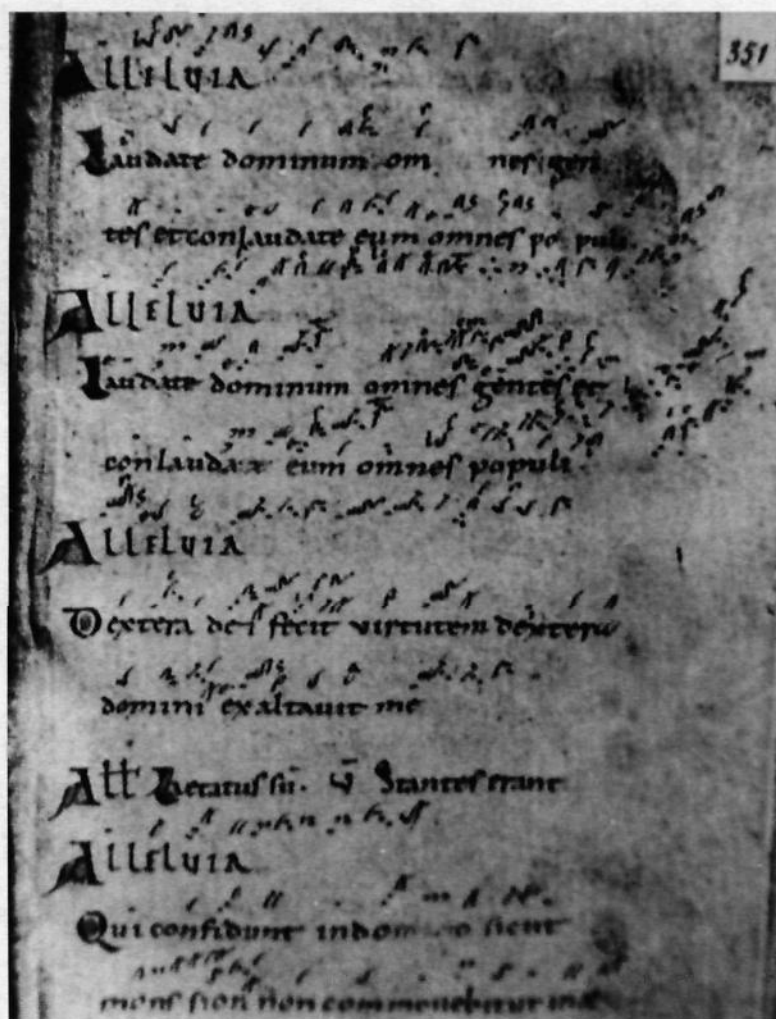 351
Alleluia
Laudate dominum om nes gen
tes et conlaudate eum omnes po puli
Alleluia
Laudate dominum omnes gentes et
conlaudate eum omnes populi
Alleluia
Dextera dei fecit virtutem dextera
domini exaltauit me
Alleluia
Qui confidunt in domino sicut
mons sion non commouebitur in